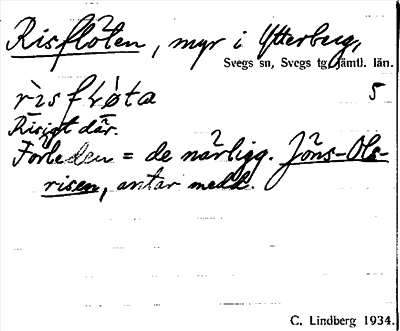 Risflöten, myr i Ytterberg,
Svegs sn, Svegs tg, Jämtl. län.
rìsfɫø̀ta 5
Risigt där.
Förleden = de närligg. Jöns-Ols-
risen, antar medd.
C. Lindberg 1934.